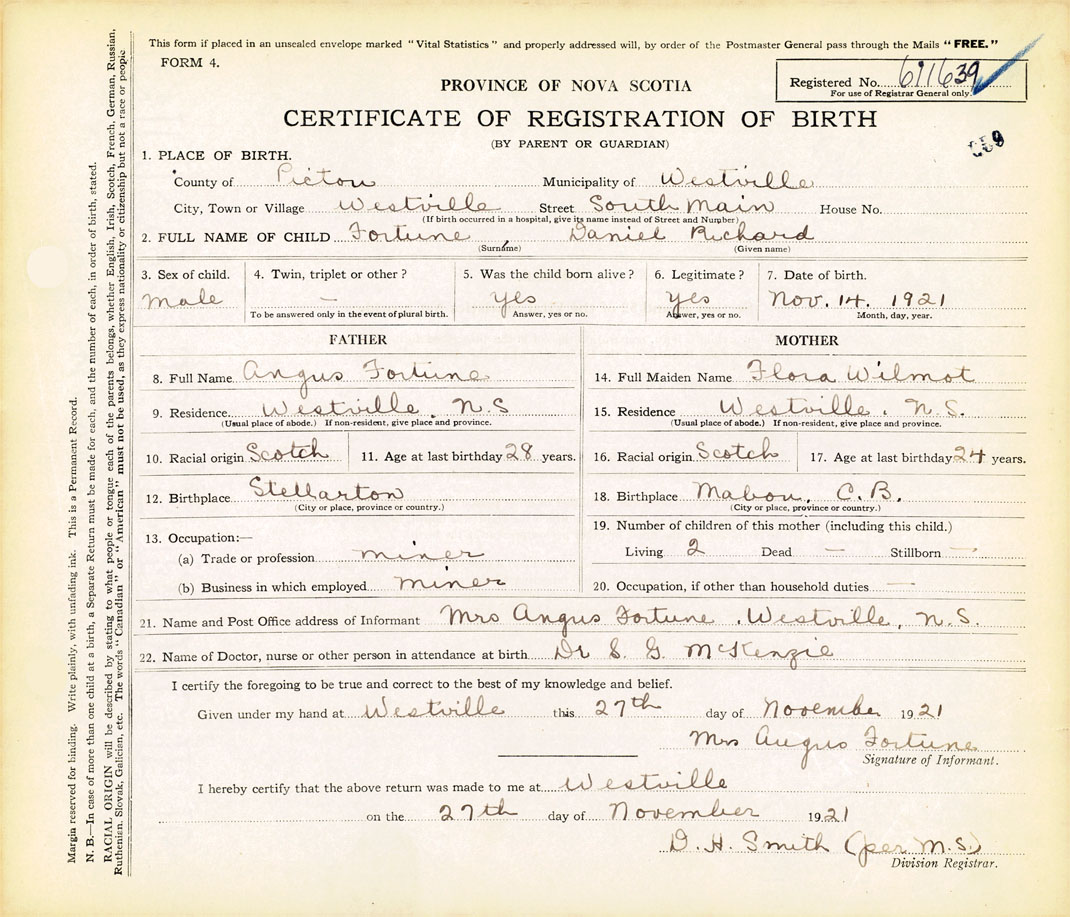 This form if placed in an unsealed envelope marked "Vital Statistics" and properly addressed will, by order of the Postmaster General pass through the Mails "FREE."
FORM 4.
Registered No. 691639
For use of Registrar General only.
PROVINCE OF NOVA SCOTIA
CERTIFICATE OF REGISTRATION OF BIRTH
(BY PARENT OR GUARDIAN)
059
1. PLACE OF BIRTH.
County of Pictou Municipality of Westville
City, Town or Village Westville Street South Main House No.
(If birth occurred in a hospital, give its name instead of Street and Number)
2. FULL NAME OF CHILD Fortune, Daniel Richard
(Surname) (Given name)
3. Sex of child. 4. Twin, triplet or other? 5. Was the child born alive? 6. Legitimate? 7. Date of birth.
Male — yes yes Nov. 14. 1921
To be answered only in the event of plural birth. Answer, yes or no. Answer, yes or no. Month, day, year.
FATHER
8. Full Name Angus Fortune
9. Residence Westville, N.S
(Usual place of abode.) If non-resident, give place and province.
10. Racial origin Scotch 11. Age at last birthday 28 years.
12. Birthplace Stellarton
(City or place, province or country.)
13. Occupation:—
(a) Trade or profession miner
(b) Business in which employed miner
MOTHER
14. Full Maiden Name Flora Wilmot
15. Residence Westville, N.S.
(Usual place of abode.) If non-resident, give place and province.
16. Racial origin Scotch 17. Age at last birthday 24 years.
18. Birthplace Mabou, C.B.
(City or place, province or country.)
19. Number of children of this mother (including this child.)
Living 2 Dead — Stillborn —
20. Occupation, if other than household duties —
21. Name and Post Office address of Informant Mrs Angus Fortune, Westville, N.S.
22. Name of Doctor, nurse or other person in attendance at birth Dr S. G. McKenzie
I certify the foregoing to be true and correct to the best of my knowledge and belief.
Given under my hand at Westville this 27th day of November 1921
Mrs Angus Fortune
Signature of Informant.
I hereby certify that the above return was made to me at Westville
on the 27th day of November 1921
D. H. Smith (per M.S.)
Division Registrar.
Margin reserved for binding. Write plainly, with unfading ink. This is a Permanent Record.
N. B.—In case of more than one child at a birth, a Separate Return must be made for each, and the number of each, in order of birth, stated.
RACIAL ORIGIN will be described by stating to what people or tongue each of the parents belongs, whether English, Irish, Scotch, French, German, Russian,
Ruthenian, Slovak, Galician, etc. The words "Canadian" or "American" must not be used, as they express nationality or citizenship but not a race or people